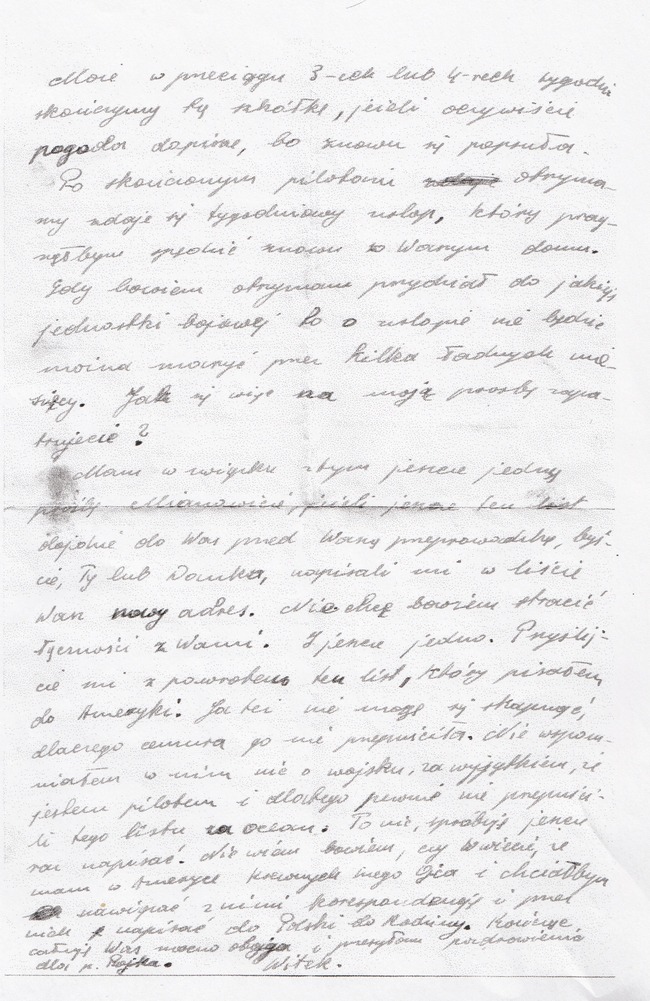 Może w przeciągu 3-ech lub 4-rech tygodni
skończymy tę szkółkę, jeżeli oczywiście
pogoda dopisze, bo znowu się popsuła.
Po skończonym pilotażu otrzyma-
my zdaje się tygodniowy urlop, który prag-
nąłbym spędzić znowu w Waszym domu.
Gdy bowiem otrzymam przydział do jakiejś
jednostki bojowej to o urlopie nie będzie
można marzyć przez kilka ładnych mie-
sięcy. Jak się więc na moją prośbę zapa-
trujecie?
Mam w związku z tym jeszcze jedną
prośbę. Mianowicie, jeżeli jeszcze ten list
dojdzie do Was przed Waszą przeprowadzką, byś-
cie, Ty lub Danka, napisali mi w liście
Wasz nowy adres. Nie chcę bowiem stracić
łączności z Wami. I jeszcze jedno. Przyślij-
cie mi z powrotem ten list, który pisałem
do Ameryki. Ja też nie mogę się skapnąć,
dlaczego cenzura go nie przepuściła. Nie wspom-
niałem w nim nic o wojsku, za wyjątkiem, że
jestem pilotem i dlatego pewnie nie przepuści-
li tego listu za ocean. To nic, spróbuję jeszcze
raz napisać. Nie wiem bowiem, czy wiecie, że
mam w Ameryce krewnych mego Ojca i chciałbym
nawiązać z nimi korespondencję i przez
nich napisać do Polski do Rodziny. Kończąc
całuję Was mocno oboje i przesyłam pozdrowienia
dla p. Bojka. Witek.